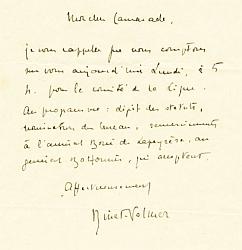 Mon cher Camarade,
je vous rappelle que nous comptons
sur vous aujourd'hui Lundi, à 5
h. pour le comité de la Ligue.
Au programme : dépôt des statuts,
nomination du bureau, remerciements
à l'amiral Boué de Lapeyrère, au
général Balfourier, qui acceptent.
Affectueusement
Binet-Valmer